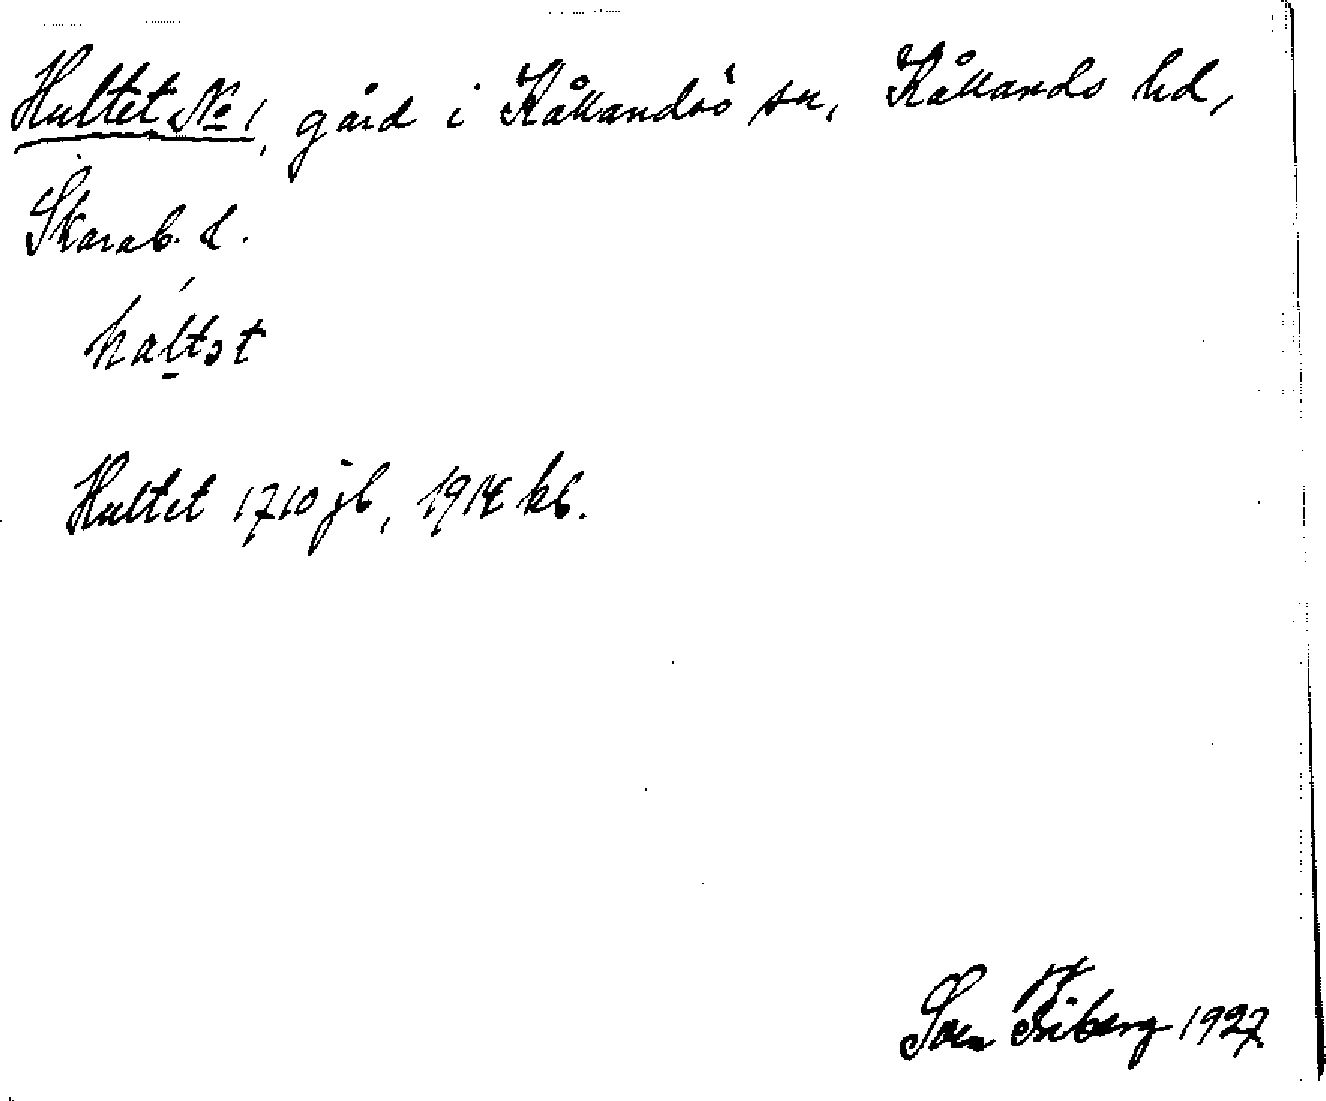 Hultet No 1, gård i Kållandsö sn, Kållands hd,
Skarab. l.
háltət
Hultet 1710 jb, 1914 kb.
Sven Friberg 1927.